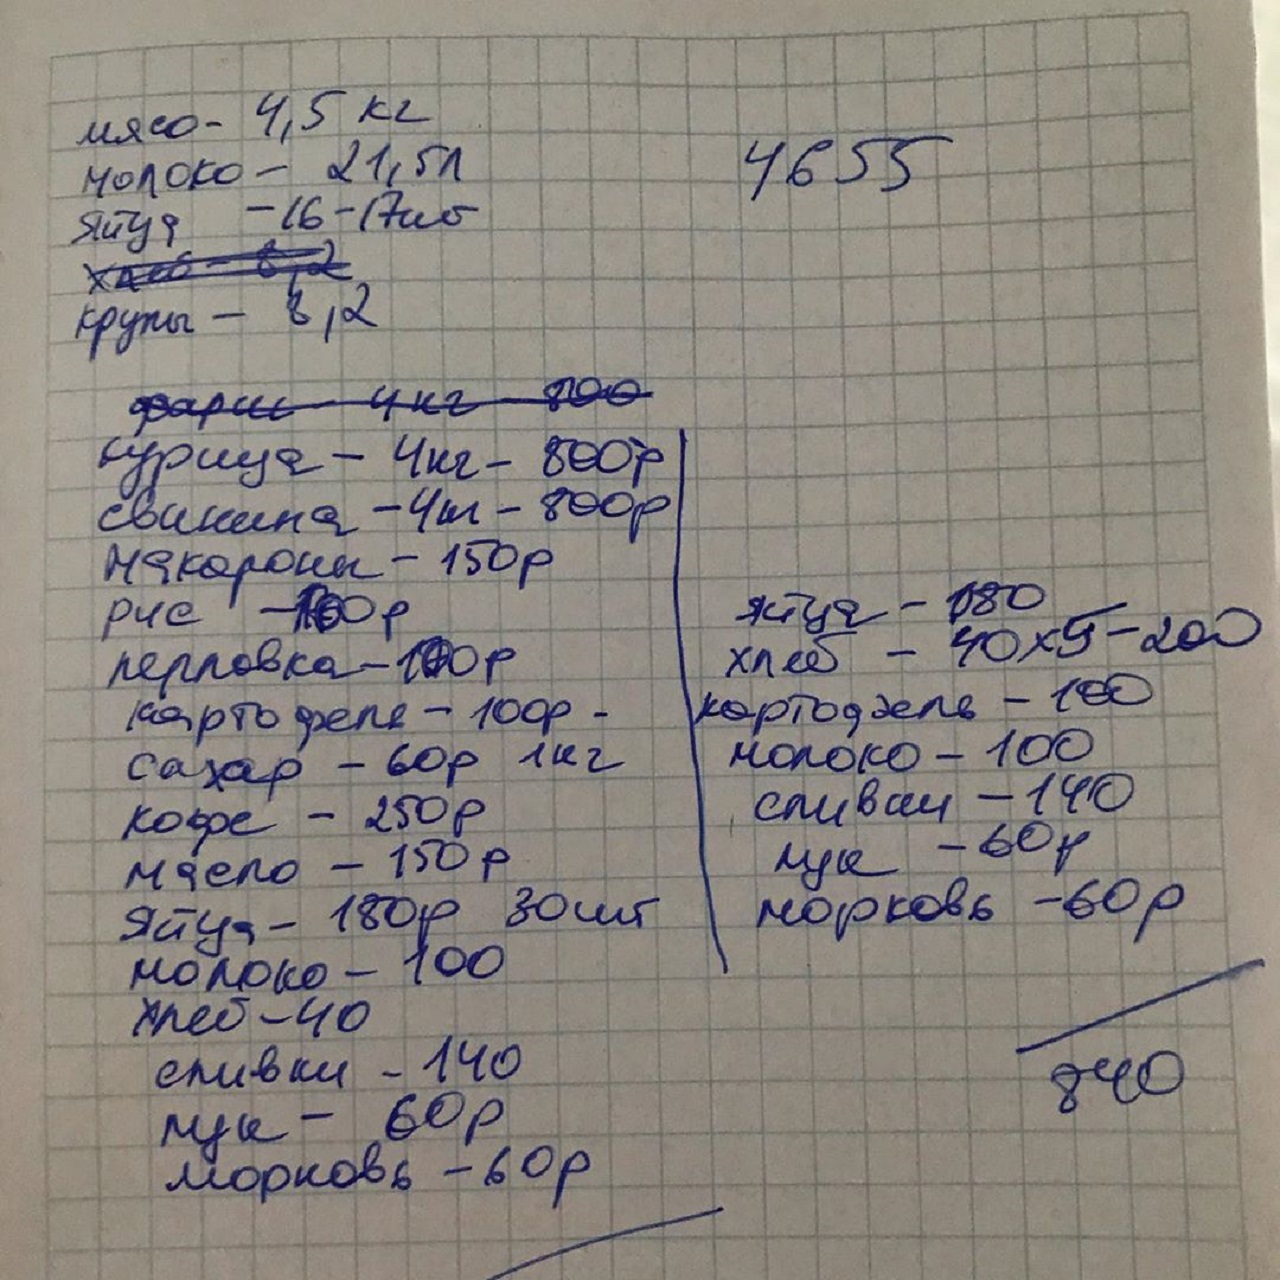 мясо- 4,5 кг
молоко - 21,5л
яйца - 16-17шт
хлеб - 8,2
крупы - 8,2
4655
фарш - 4кг - 800
курица - 4кг - 800р
свинина - 4кг - 800р
макароны - 150р
рис - 100р
перловка - 100р
картофель - 100р -
сахар - 60р 1кг
кофе - 250р
масло - 150р
яйца - 180р 30шт
молоко - 100
хлеб - 40
сливки - 140
лук - 60р
морковь - 60р
яйца - 180
хлеб - 40х5-200
картофель - 100
молоко - 100
сливки - 140
лук - 60р
морковь - 60р
840